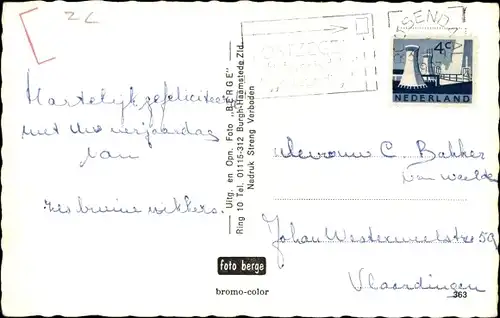 ZL
Hartelijk gefeliciteerd
met Uw verjaardag
van
Uitg. en Opn. Foto „BERGE"
Ring 10 Tel. 01115-312 Burgh-Haamstede Zld.
Nadruk Streng Verboden
foto berge
bromo-color
4c
NEDERLAND
Mevrouw C. Bakker
Johan Westerweelstr 59
Vlaardingen
363